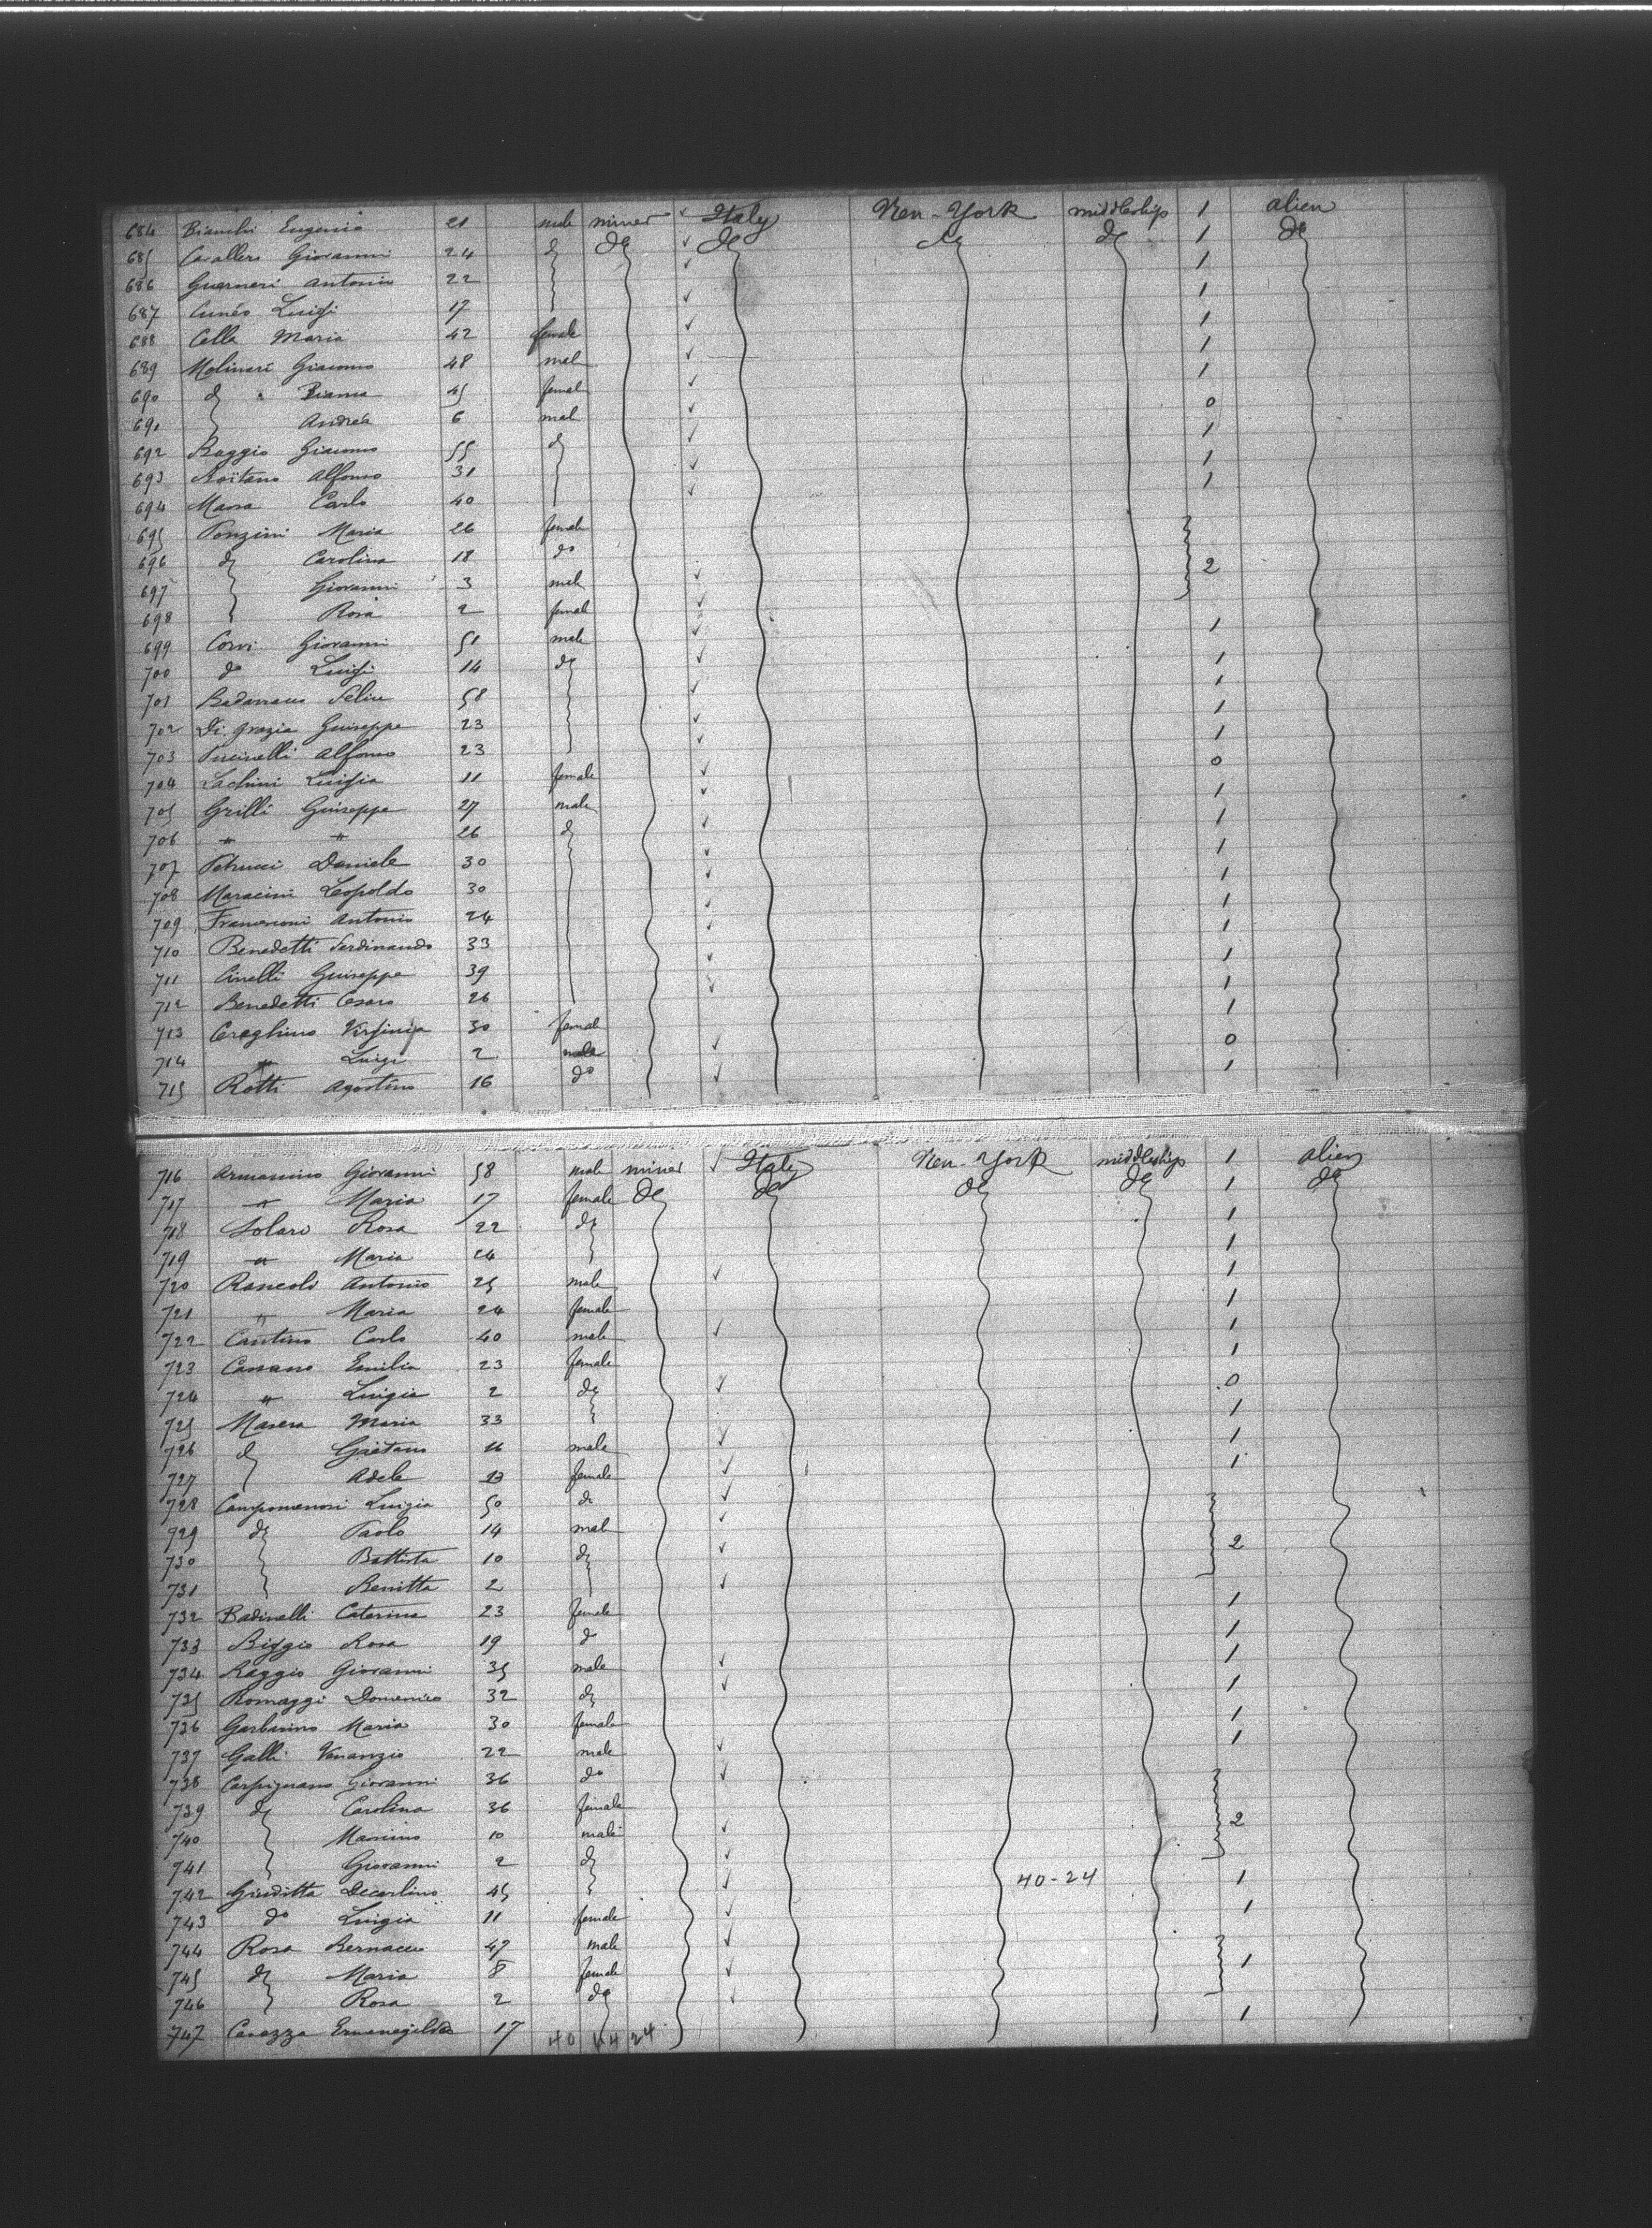 684 Bianchi Eugenio 21 male miner ✓ Italy New-York middleship 1 alien
685 Cavallero Giovanni 24 do do ✓ do do do 1 do
686 Guerneri Antonio 22 ✓ 1
687 Cuneo Luigi 17 ✓ 1
688 Cella Maria 42 female ✓ 1
689 Molinari Giacomo 48 male ✓ 1
690 do " Bianca 45 female ✓ 1
691 Andrea 6 male ✓ 0
692 Raggio Giacomo 55 do ✓ 1
693 Alfonso 31 ✓ 1
694 Massa Carlo 40 ✓ 1
695 Ponzini Maria 26 female
696 do Carolina 18 do 2
697 Giovanni 3 male ✓
698 Rosa 2 female ✓
699 Corvi Giovanni 51 male ✓ 1
700 do Luigi 14 do ✓ 1
701 Badaracco Felice 58 ✓ 1
702 Di Grazia Guiseppe 23 ✓ 1
703 Puccinelli Alfonso 23 ✓ 1
704 Lachini Luigia 11 female ✓ 0
705 Grilli Guiseppe 27 male ✓ 1
706 " " 26 do ✓ 1
707 Petrucci Daniele 30 ✓ 1
708 Maracini Leopoldo 30 ✓ 1
709 Francesconi Antonio 24 ✓ 1
710 Benedetti Ferdinando 33 ✓ 1
711 Cinelli Guiseppe 39 ✓ 1
712 Benedetti Cesare 26 ✓ 1
713 Cereghino Virginia 30 female 1
714 " Luigi 2 male ✓ 0
715 Rotti Agostino 16 do ✓ 1
716 Armannino Giovanni 58 male miner ✓ Italy New-York middleship 1 alien
717 " Maria 17 female do do do do 1 do
718 Solari Rosa 22 do 1
719 " Maria 24 1
720 Rancoli Antonio 25 male ✓ 1
721 " Maria 24 female 1
722 Cantino Carlo 40 male ✓ 1
723 Cassano Emilia 23 female 1
724 " Luigia 2 do ✓ 0
725 Masera Maria 33 1
726 do Gaetano 16 male ✓ 1
727 Adele 13 female ✓ 1
728 Campomenosi Luigia 50 do ✓
729 do Paolo 14 male ✓
730 Battista 10 do ✓ 2
731 Benitta 2 ✓
732 Badinelli Caterina 23 female 1
733 Biggio Rosa 19 do 1
734 Raggio Giovanni 35 male ✓ 1
735 Romaggi Domenico 32 do ✓ 1
736 Garbarino Maria 30 female 1
737 Galli Venanzio 22 male ✓ 1
738 Carpignano Giovanni 36 do ✓
739 do Carolina 36 female 2
740 Massimo 10 male ✓
741 Giovanni 2 do ✓
742 Giuditta Decarlino 45 ✓ 40-24 1
743 do Luigia 11 female ✓ 1
744 Rosa Bernacco 47 male ✓
745 do Maria 8 female ✓ 1
746 Rosa 2 do ✓
747 Cavazza Ermenegilda 17 40 64 24 1